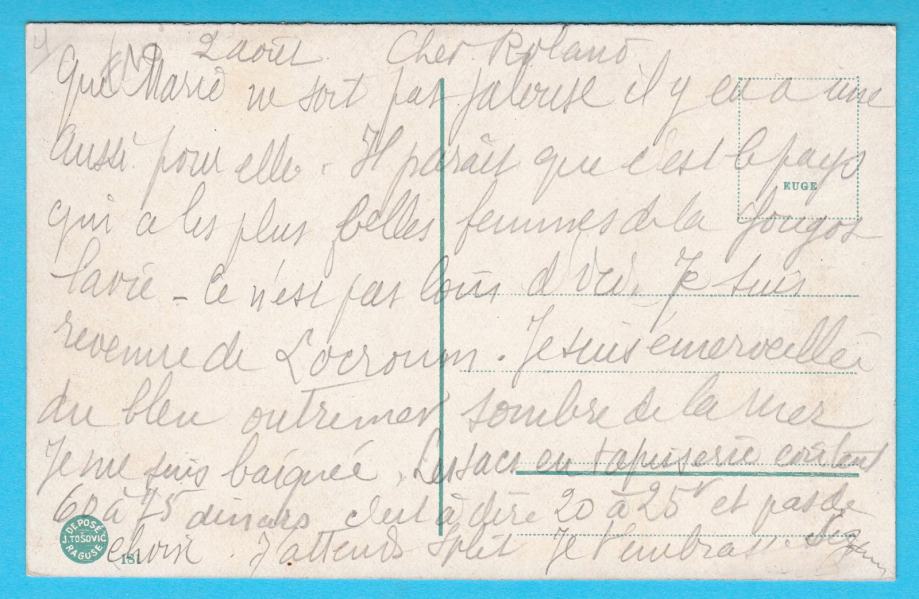 2 août. Cher Roland
Que Marie ne soit pas jalouse il y en a une
aussi pour elle. Il paraît que c'est le pays
qui a les plus belles femmes de la Yougos
lavie - Ce n'est pas loin d'ici. Je suis
revenue de Locroum. Je suis émerveillée
du bleu outremer sombre de la mer
Je me suis baignée. Les sacs en tapisserie coûtent
60 à 75 dinars c'est à dire 20 à 25 et pas de
choix. J'attends Split Je t'embrasse.
EUGE
DEPOSÉ
J. TOŠOVIĆ
RAGUSE
181